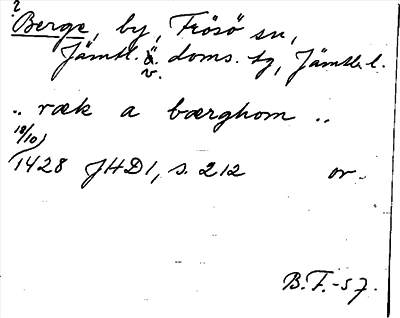 ?
Berge, by, Frösö sn,
Jämtl. v. doms. tg, Jämtl. l.
.. ræk a bærghom ..
18/10
1428 JHD1, s. 212 or.
B.F.-57.